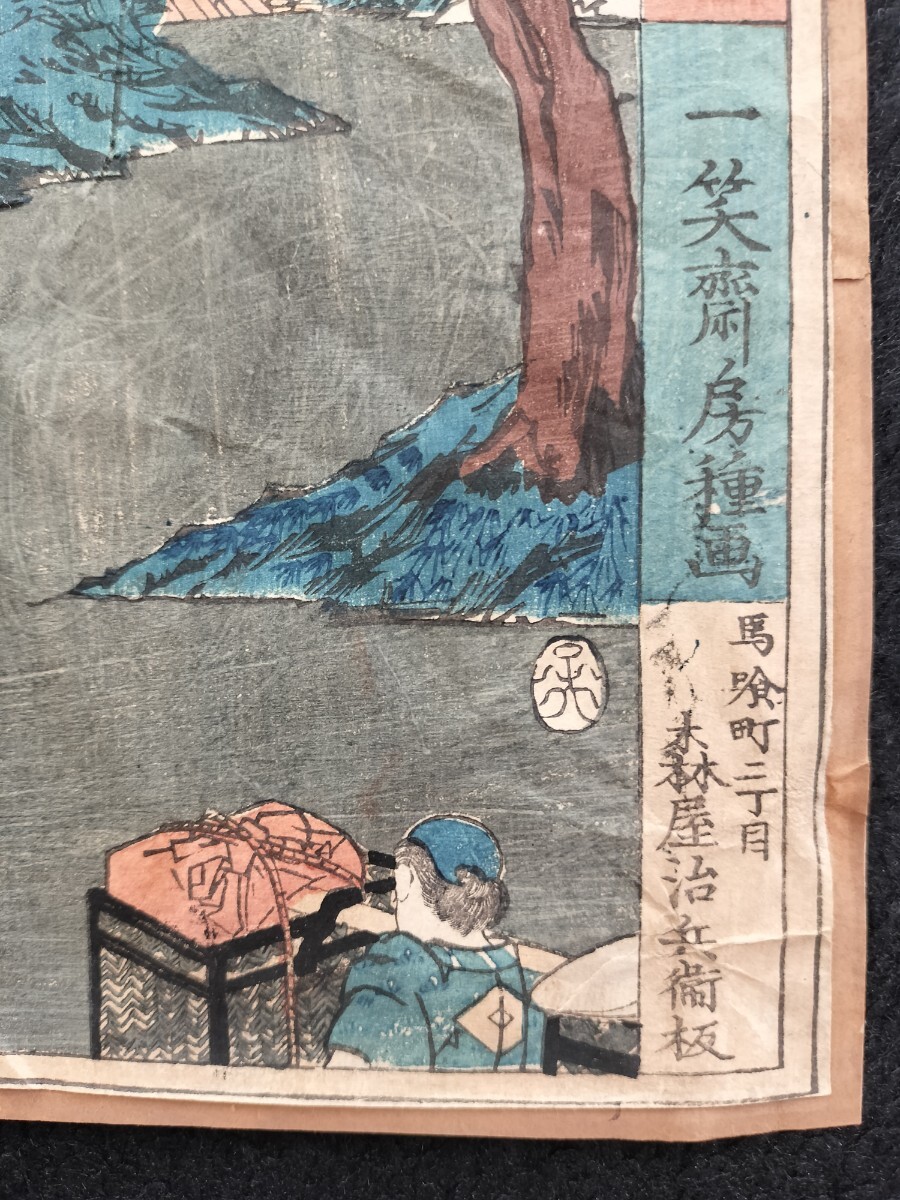 一笑齋房種画
馬喰町二丁目
木林屋治兵衞板